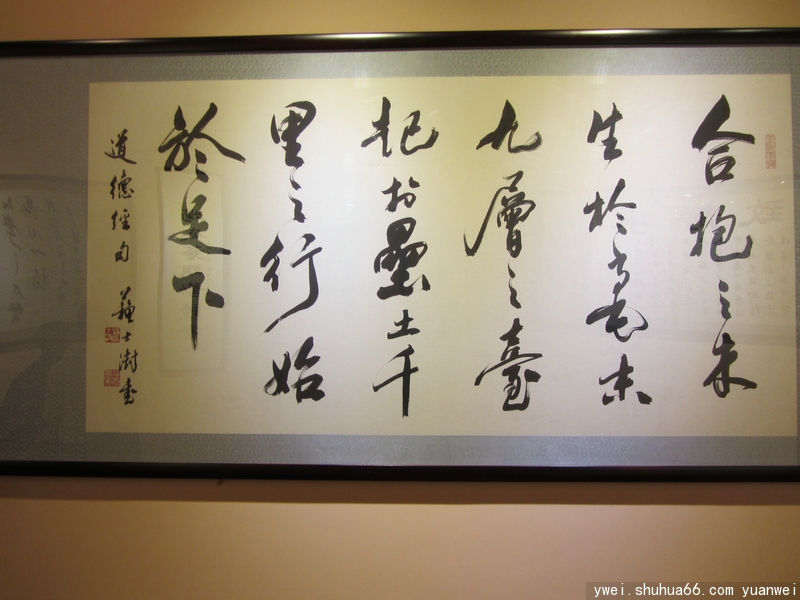 合抱之木
生於毫末
九層之臺
起於壘土千
里之行始
於足下
道德經句 蘇士澍書
ywei.shuhua66.com yuanwei